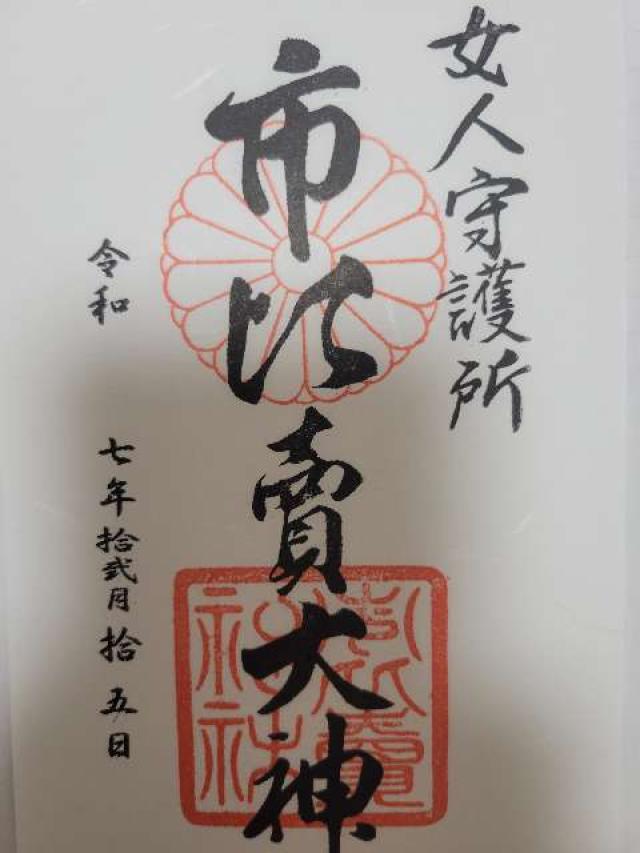 女人守護所
市比賣大神
市比賣神社
令和七年拾弐月拾五日